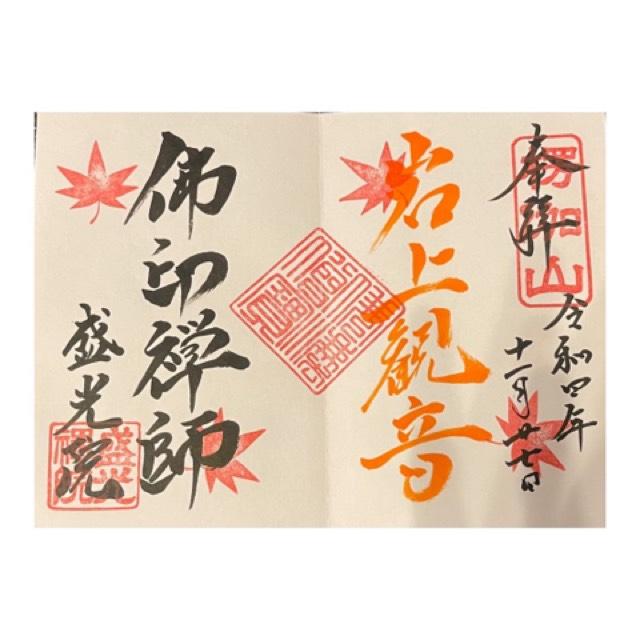 奉拜
楞伽山
令和四年
十一月廿七日
岩上観音
佛印禅師
盛光院